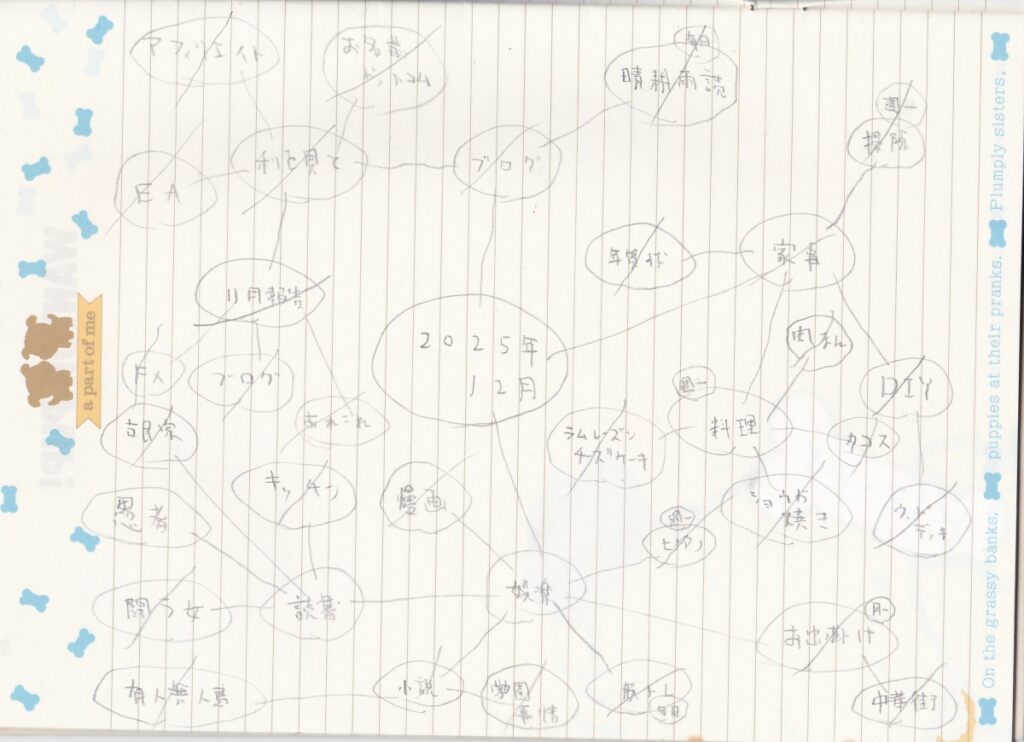 アフィリエイト
お名前
ドットコム
毎日
晴耕雨読
週一
掃除
EA
利己見て
ブログ
年賀状
家事
11月報告
2025年
12月
肉まん
FX
ブログ
あれこれ
週一
料理
DIY
古民家
ラムレーズン
チーズケーキ
タコス
キッチン
漫画
ショウガ
焼き
ウッド
デッキ
思考
週一
ピアノ
闘う女
読書
娯楽
月一
お出掛け
有人無人島
小説
学園
事情
筋トレ
毎日
中華街
a part of me
On the grassy banks. puppies at their pranks. Plumply sisters.